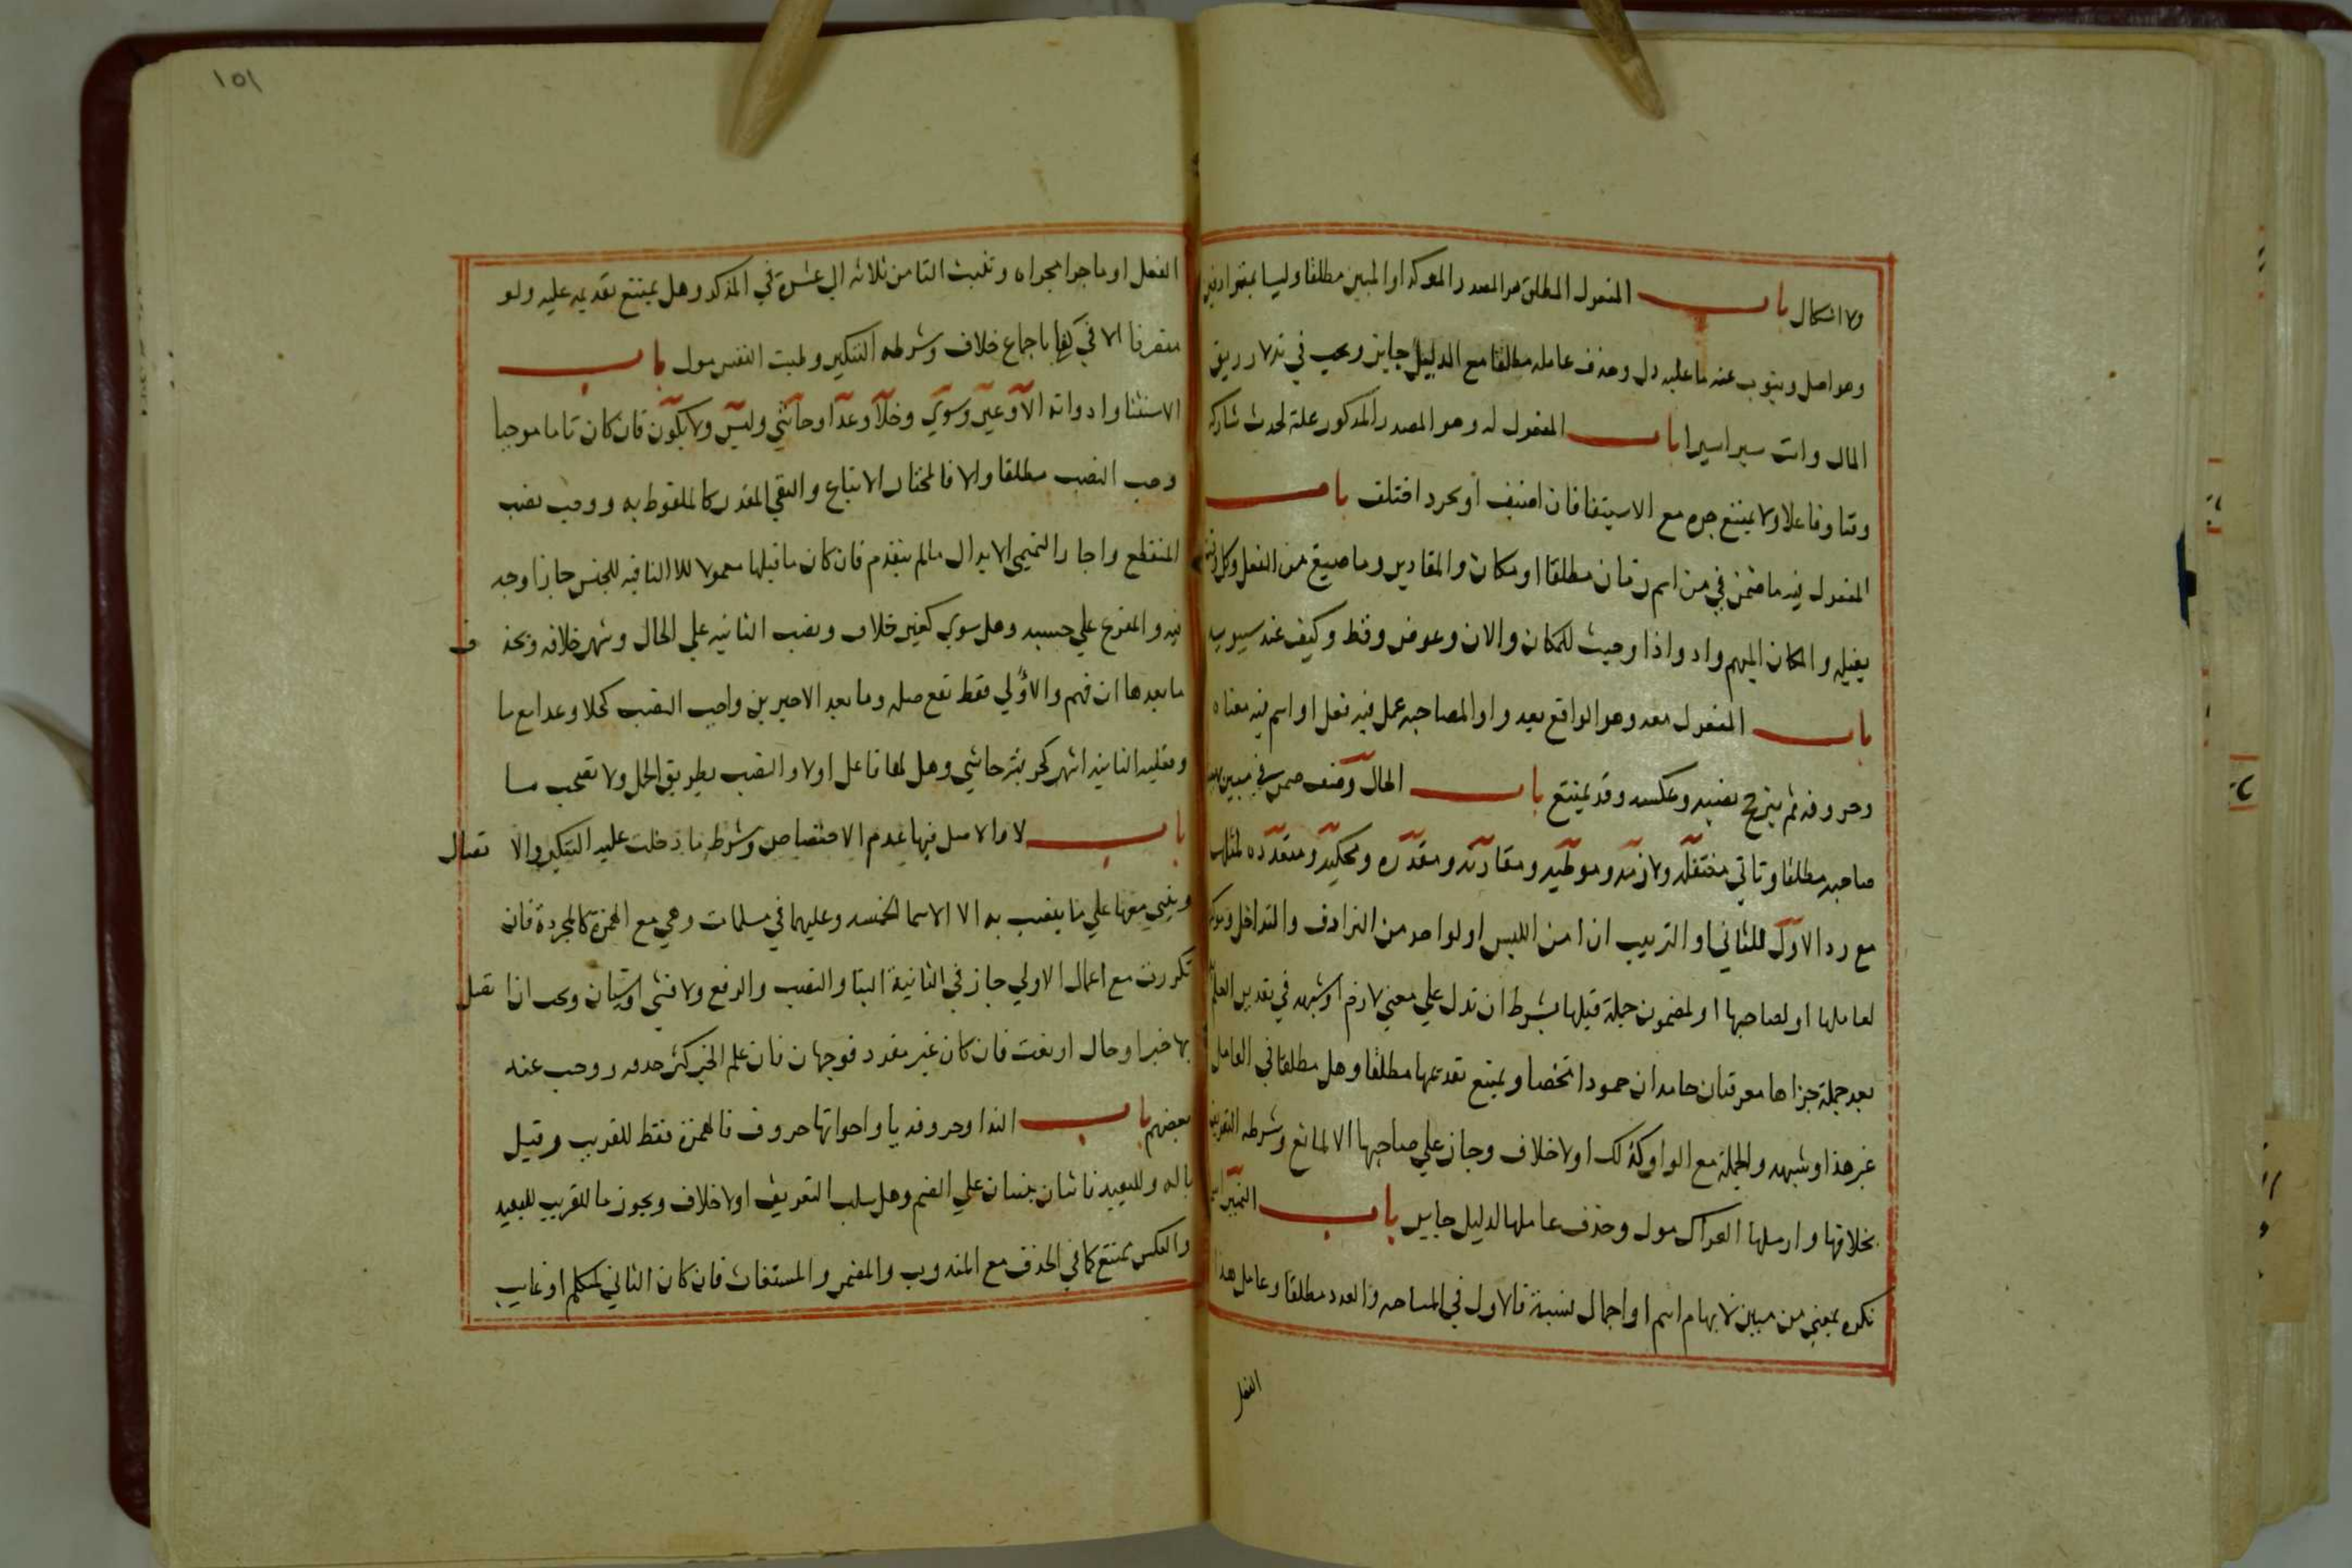 ولا اشكال باب المفعول المطلق هو المصدر الموكد او المبين مطلقا وليسا بمترادفين
وهو اصل وينوب عنه ما عليه دل وحذف عامله مطلقا مع الدليل جايز ويجب في ندلا زريق
المال وانت سيرا سيرا باب المفعول له وهو المصدر المذكور علة لحدث شاركه
وقتا وفاعلا ولا يمتنع جره مع الاستيفا فان اضيف او بجرد اختلف باب
المفعول فيه ما ضمن في من اسم زمان مطلقا او مكان والمقادير وما صيغ من الفعل وكل
يفيله والمكان المبهم واد واذا وحيث للمكان والان وعوض وقط وكيف عند سيبويه
باب المفعول معه وهو الواقع بعد واو المصاحبه عمل فيه فعل او اسم فيه معناه
وحروفه ثم يترجح نصبه وعكسه وقد يمتنع باب الحال وصف ضمن في مبين
صاحبه مطلقا وتاتي منتقله ولازمه وموطيه ومقارنه ومقدره ومحكيه ومتعدده
مع رد الاول للثاني او الترتيب ان امن اللبس او لواحد من الترادف والتداخل
لعاملها او لصاحبها او لمضمون جملة قبلها بشرط ان تدل علي معني لازم او شبهه في تقديم
بعد جملة جزاها معرفتان جامدان جمودا محضا ويمتنع تقديمها مطلقا وهل مطلقا في العامل
غير هذا وشبهه والجملة مع الواو كذلك او لا خلاف وجاز علي صاحبها الا لمانع وشرطه التعريف
بخلافها وارسلها العراك مول وحذف عاملها لدليل جايز باب التمييز
نكره بمعني من مبين لابهام اسم او اجمال نسبة فالاول في المساحه والعدد مطلقا وعامل هذا
الفعل
١٥١
الفعل او ما جرا مجراه وتثبت التا من ثلاثه الي عشرة في المذكر وهل يمتنع تقديمه عليه ولو
متصرفا الا في كفا باجماع خلاف وشرطه التنكير وطبت النفس مول باب
الاستثنا وادواته الا وغير وسوي وخلا وعدا وحاشي وليس ولا يكون فان كان تاما موجبا
وجب النصب مطلقا والا فالمختار الاتباع والنفي المقدر كالملفوظ به ووجب نصب
المنقطع واجاز التميمي الابدال مالم يتقدم فان كان ما قبلها معمولا للا النافيه للجنس جازا وجه
فيه والمفرغ علي حسبه وهل سوي كغير خلاف ونصب الثانيه علي الحال وشهر خلافه وبحذف
ما بعدها ان فهم والاولي فقط تقع صله وما بعد الاخيرين واجب النصب كخلا وعدا مع ما
الثانيه اشهر كجر بثر حاشي وهل لها فاعل او لا والنصب بطريق الحمل ولا تصحب ما
باب لا والاصل فيها عدم الاختصاص وشرط ما دخلت عليه التنكير والا تصال
ويبني معها علي ما ينصب به الا الاسما الخمسه وعليهما في مسلمات وهي مع الهمزة كالمجردة فان
تكررت مع اعمال الاولي جاز في الثانية البنا والنصب والرفع ولا فتي او شيان ويجب اذا تصل
بها خبر او حال او نعت فان كان غير مفرد فوجهان فان علم الخبر كثر حذفه ووجب عنه
بعضهم باب الندا وحروفه يا واخواتها حروف فالهمزة فقط للقريب وقيل
باله وللبعيد ثمان علي الضم وهل سلب التعريف او لا خلاف ويجوز ما للقريب للبعيد
والعكس يمتنع كما في الحذف مع المندوب والمضمر والمستغاث فان كان الثاني لمتكلم او غايب